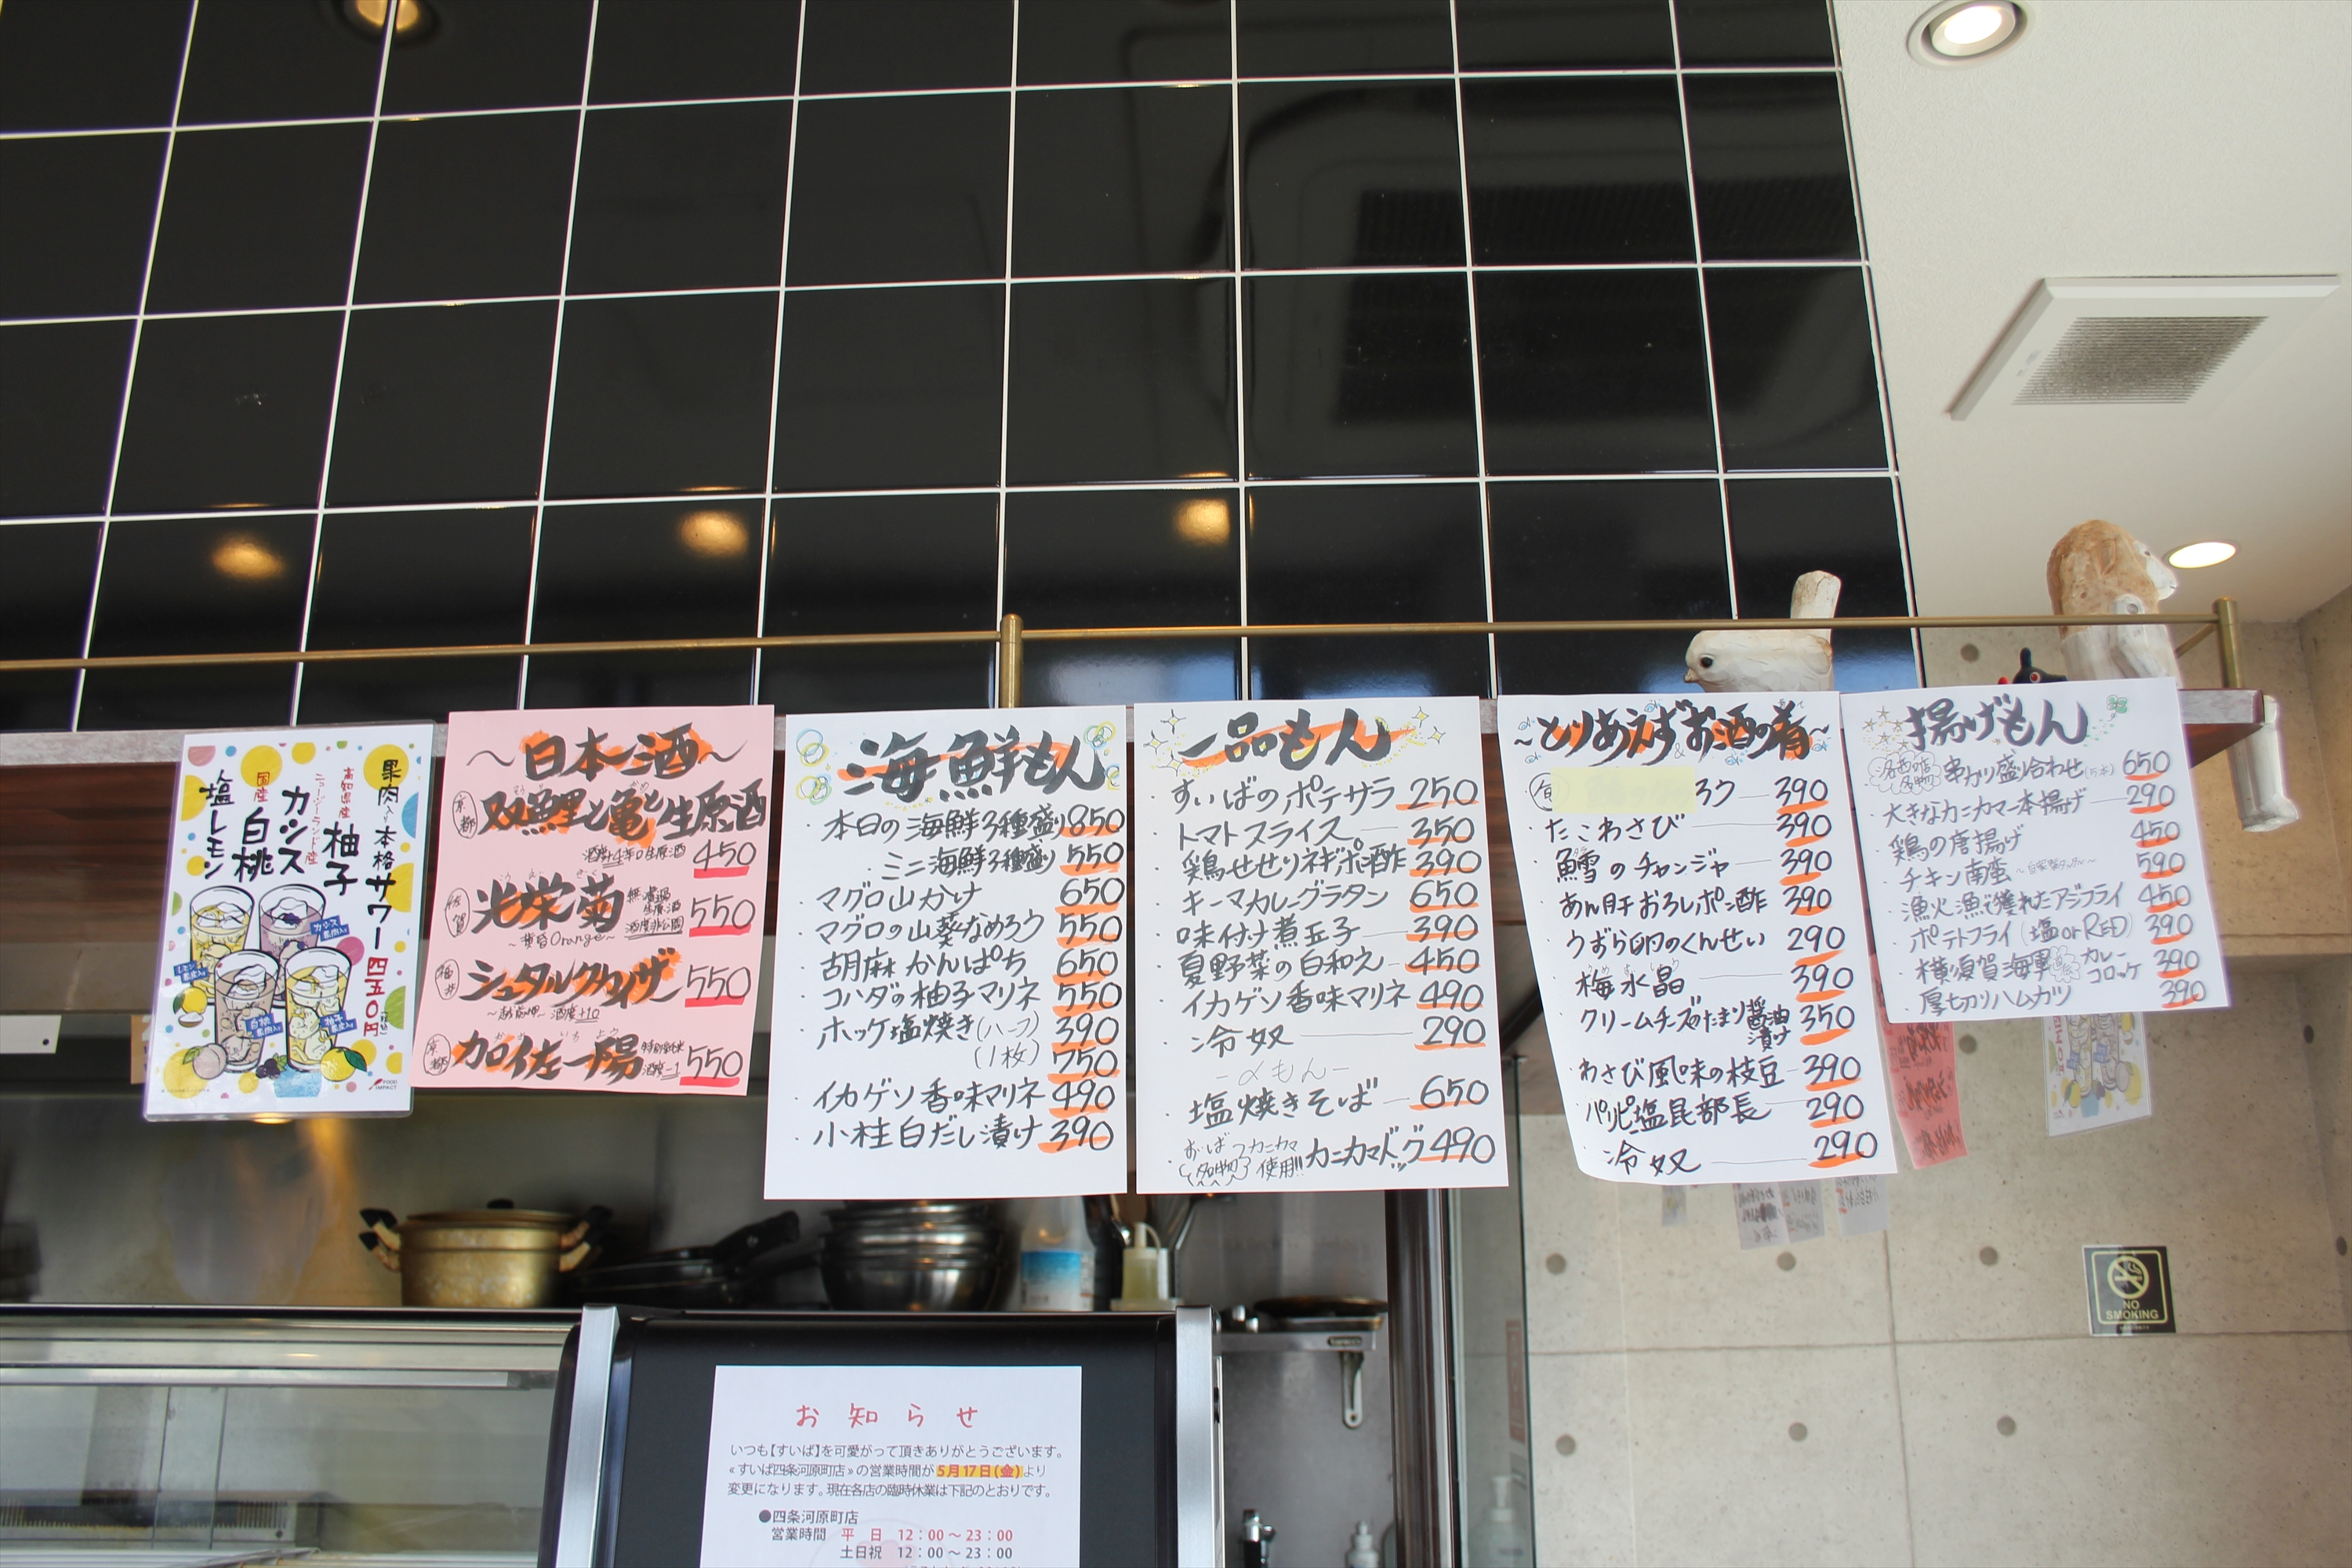 果肉入り本格サワー四五〇円(税込)
高知県産
柚子
ニュージーランド産
カシス
国産
白桃
塩レモン
カシス果肉入り
レモン果皮入り
白桃果肉入り
柚子果皮入り
FOOD IMPACT
~日本酒~
京都 双鯉と亀と生原酒
450
佐賀 光栄菊
無濾過生原酒
酒度非公開
~黄昏Orange~
550
福井 シュタルクカイザー
酒度+10
550
京都 加佐一陽
酒度-1
550
海鮮もん
・本日の海鮮3種盛り 850
・ミニ海鮮3種盛り 550
・マグロ山かけ 650
・マグロの山葵なめろう 550
・胡麻かんぱち 650
・コハダの柚子マリネ 550
・ホッケ塩焼き(ハーフ) 390
(1枚) 750
・イカゲソ香味マリネ 490
・小柱白だし漬け 390
一品もん
・すいばのポテサラ 250
・トマトスライス 350
・鶏せせりネギポン酢 390
・キーマカレーグラタン 650
・味付け煮玉子 390
・夏野菜の白和え 450
・イカゲソ香味マリネ 490
・冷奴 290
-〆もん-
・塩焼きそば 650
・おばんカニカマ使用!!カニカマドッグ 490
名物
~とりあえず&お酒の肴~
旬 ろう 390
・たこわさび 390
・鱈のチャンジャ 390
・あん肝おろしポン酢 390
・うずら卵のくんせい 290
・梅水晶 390
・クリームチーズのたまり醤油漬け 350
・わさび風味の枝豆 390
・パリピ塩昆部長 290
・冷奴 290
揚げもん
洛西の店名物 串カツ盛り合わせ(5本) 650
・大きなカニカマ一本揚げ 290
・鶏の唐揚げ 450
・チキン南蛮 590
・漁火漁で獲れたアジフライ 450
・ポテトフライ(塩 or RED) 390
・横須賀海軍カレーコロッケ 390
・厚切りハムカツ 390
NO SMOKING
お知らせ
いつも【すいば】を可愛がって頂きありがとうございます。
«すいば四条河原町店»の営業時間が5月17日(金)より
変更になります。現在各店の臨時休業は下記のとおりです。
●四条河原町店
営業時間 平 日 12:00~23:00
土日祝 12:00~23:00